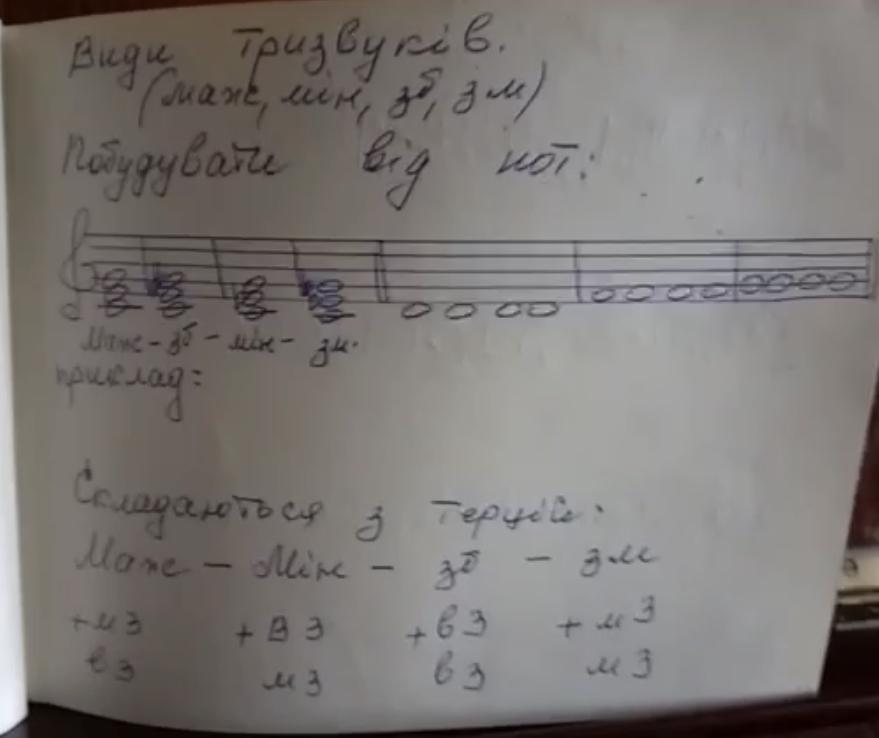 Види Тризвуків.
(маж, мін, зб, зм)
Побудувати від нот:
Маж - зб - мін - зм.
приклад:
Складаються з терцій:
Маж - Мін - зб - зм
+м3 +В3 +в3 +м3
в3 м3 в3 м3